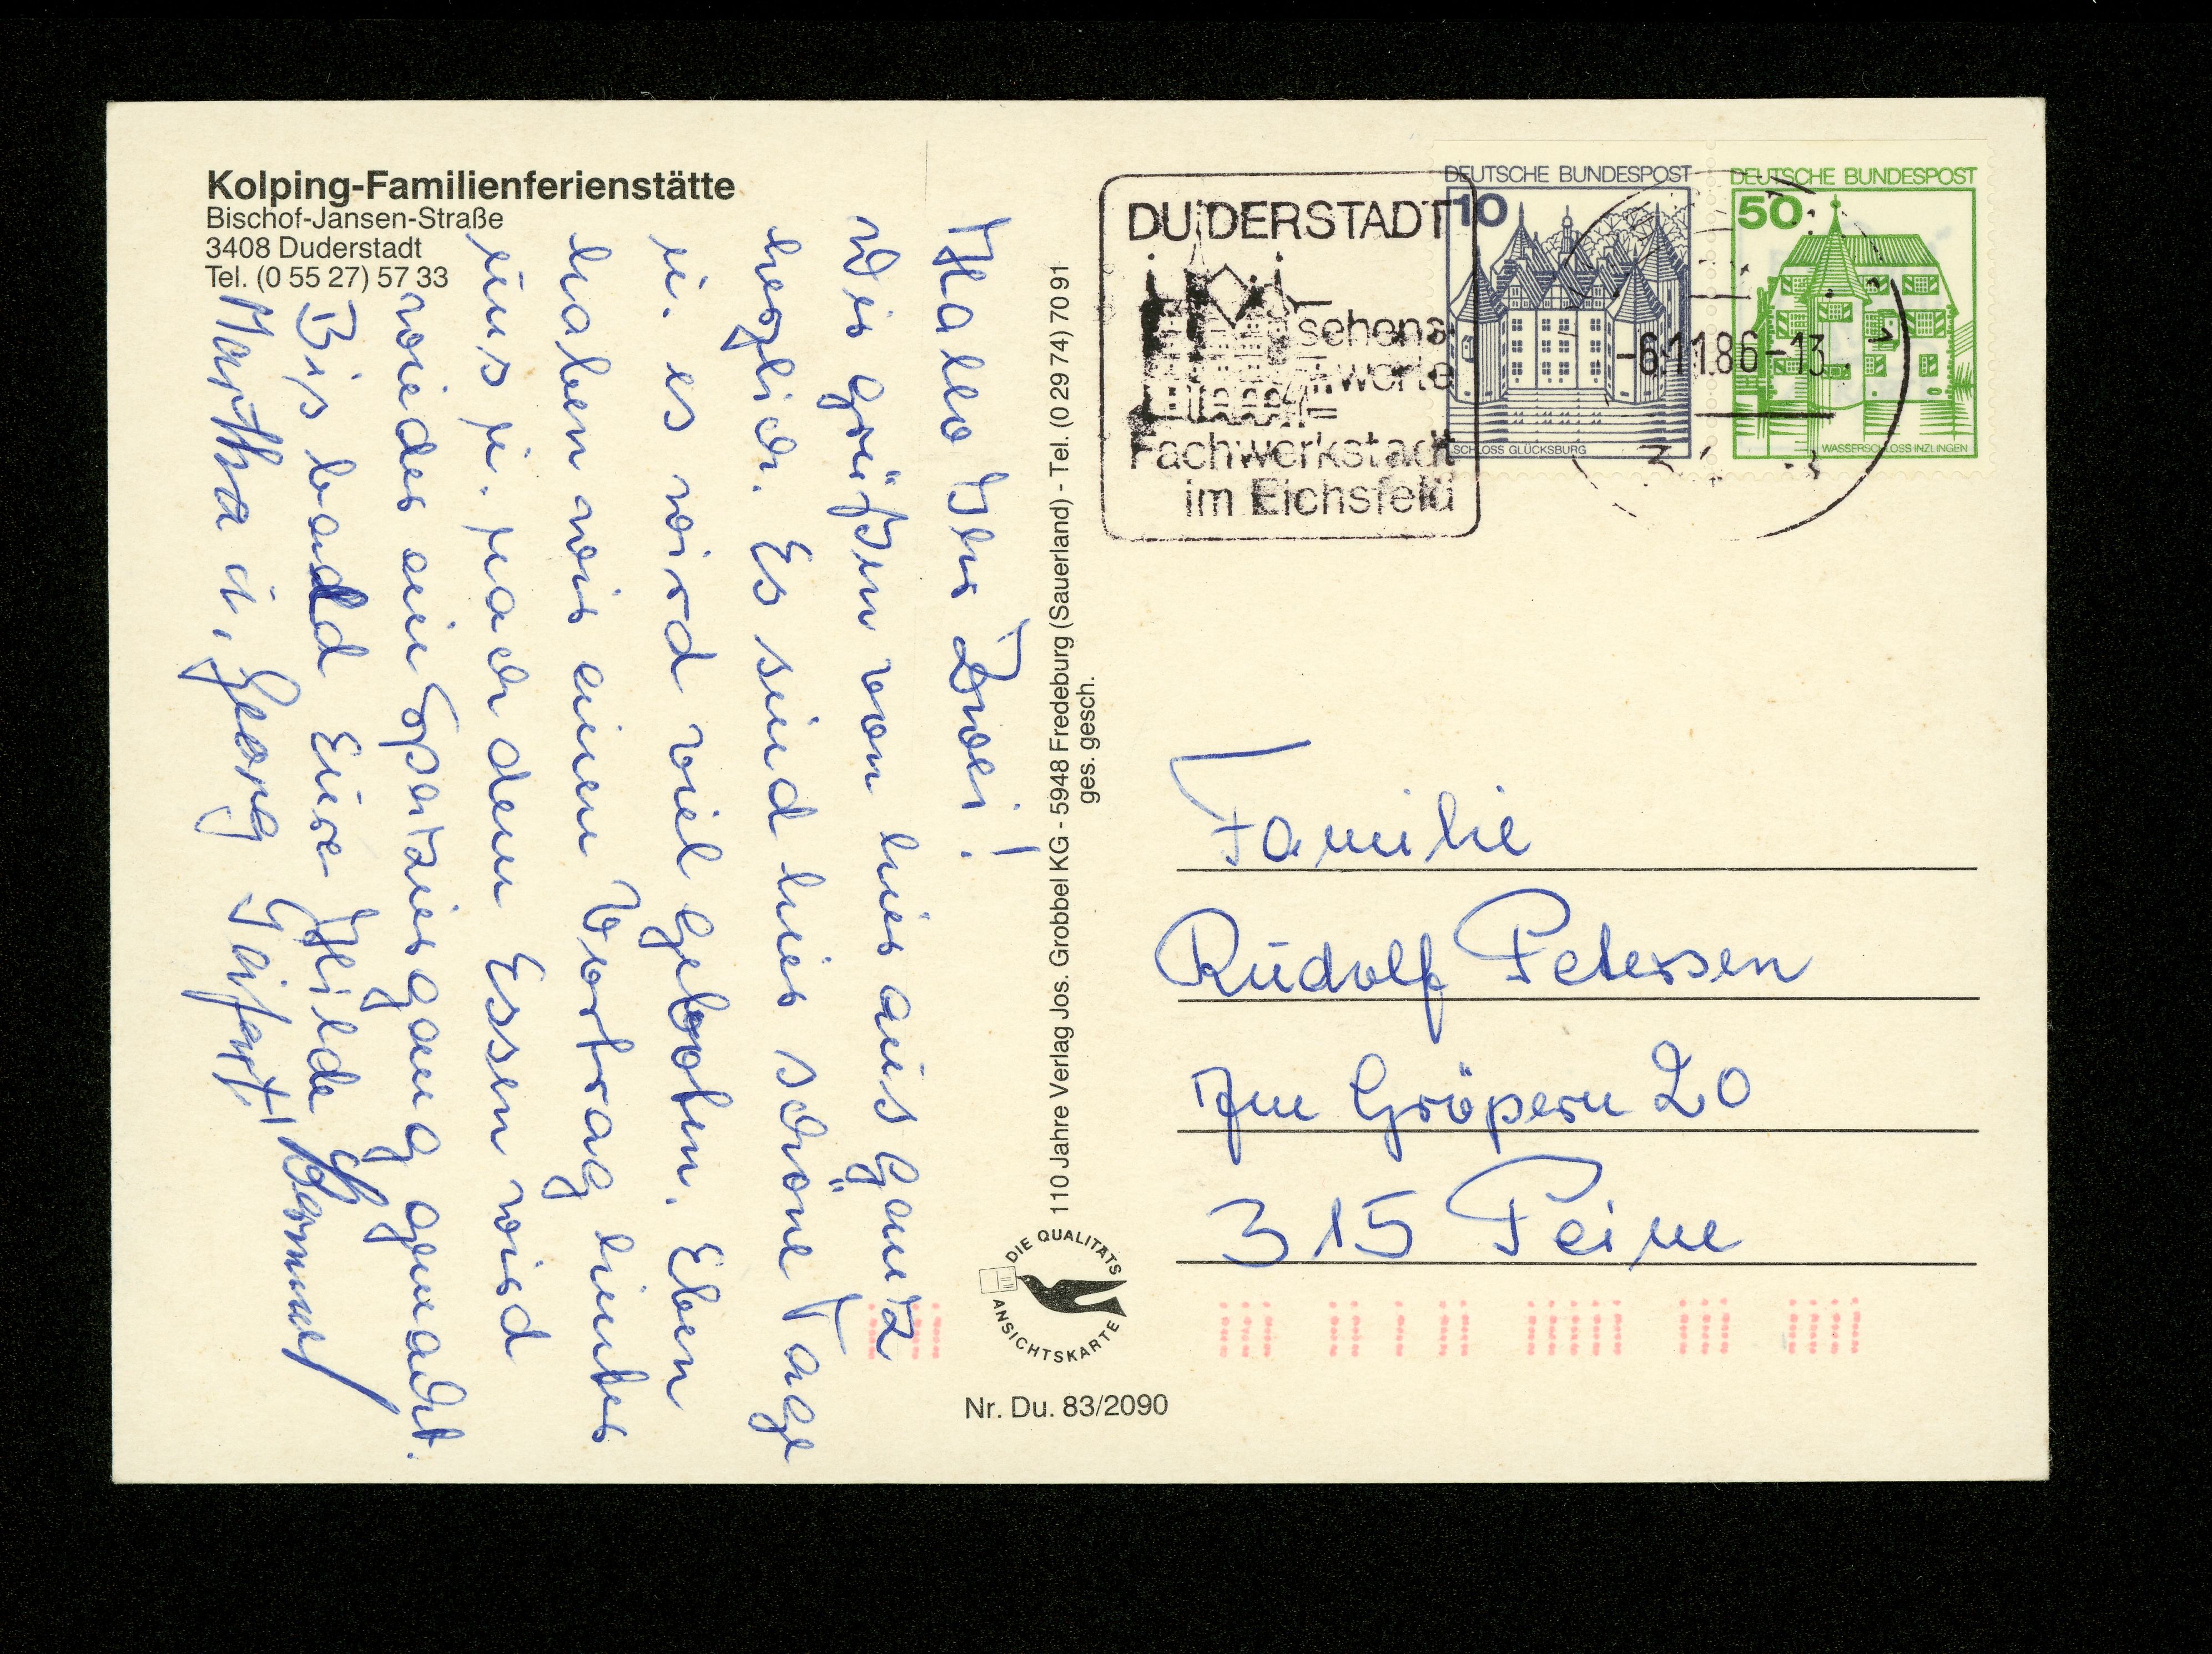 Kolping-Familienferienstätte
Bischof-Jansen-Straße
3408 Duderstadt
Tel. (0 55 27) 57 33
Hallo Ihr Zwei!
Wir grüßen von hier aus ganz
herzlich. Es sind hier schöne Tage
u. es wird viel geboten. Eben
haben wir einen Vortrag hinter
uns u. nach dem Essen wird
wieder ein Spatziergang gemacht.
Bis bald Eure Hilde
Martha u. Georg
110 Jahre Verlag Jos. Grobbel KG - 5948 Fredeburg (Sauerland) - Tel. (0 29 74) 70 91
ges. gesch.
DIE QUALITÄTS
ANSICHTSKARTE
Nr. Du. 83/2090
DUDERSTADT
sehens-
werte
Fachwerkstadt
im Eichsfeld
DEUTSCHE BUNDESPOST
10
SCHLOSS GLÜCKSBURG
DEUTSCHE BUNDESPOST
50
WASSERSCHLOSS INZLINGEN
-6.11.86-13
Familie
Rudolf Petersen
Am Gröpern 20
315 Peine